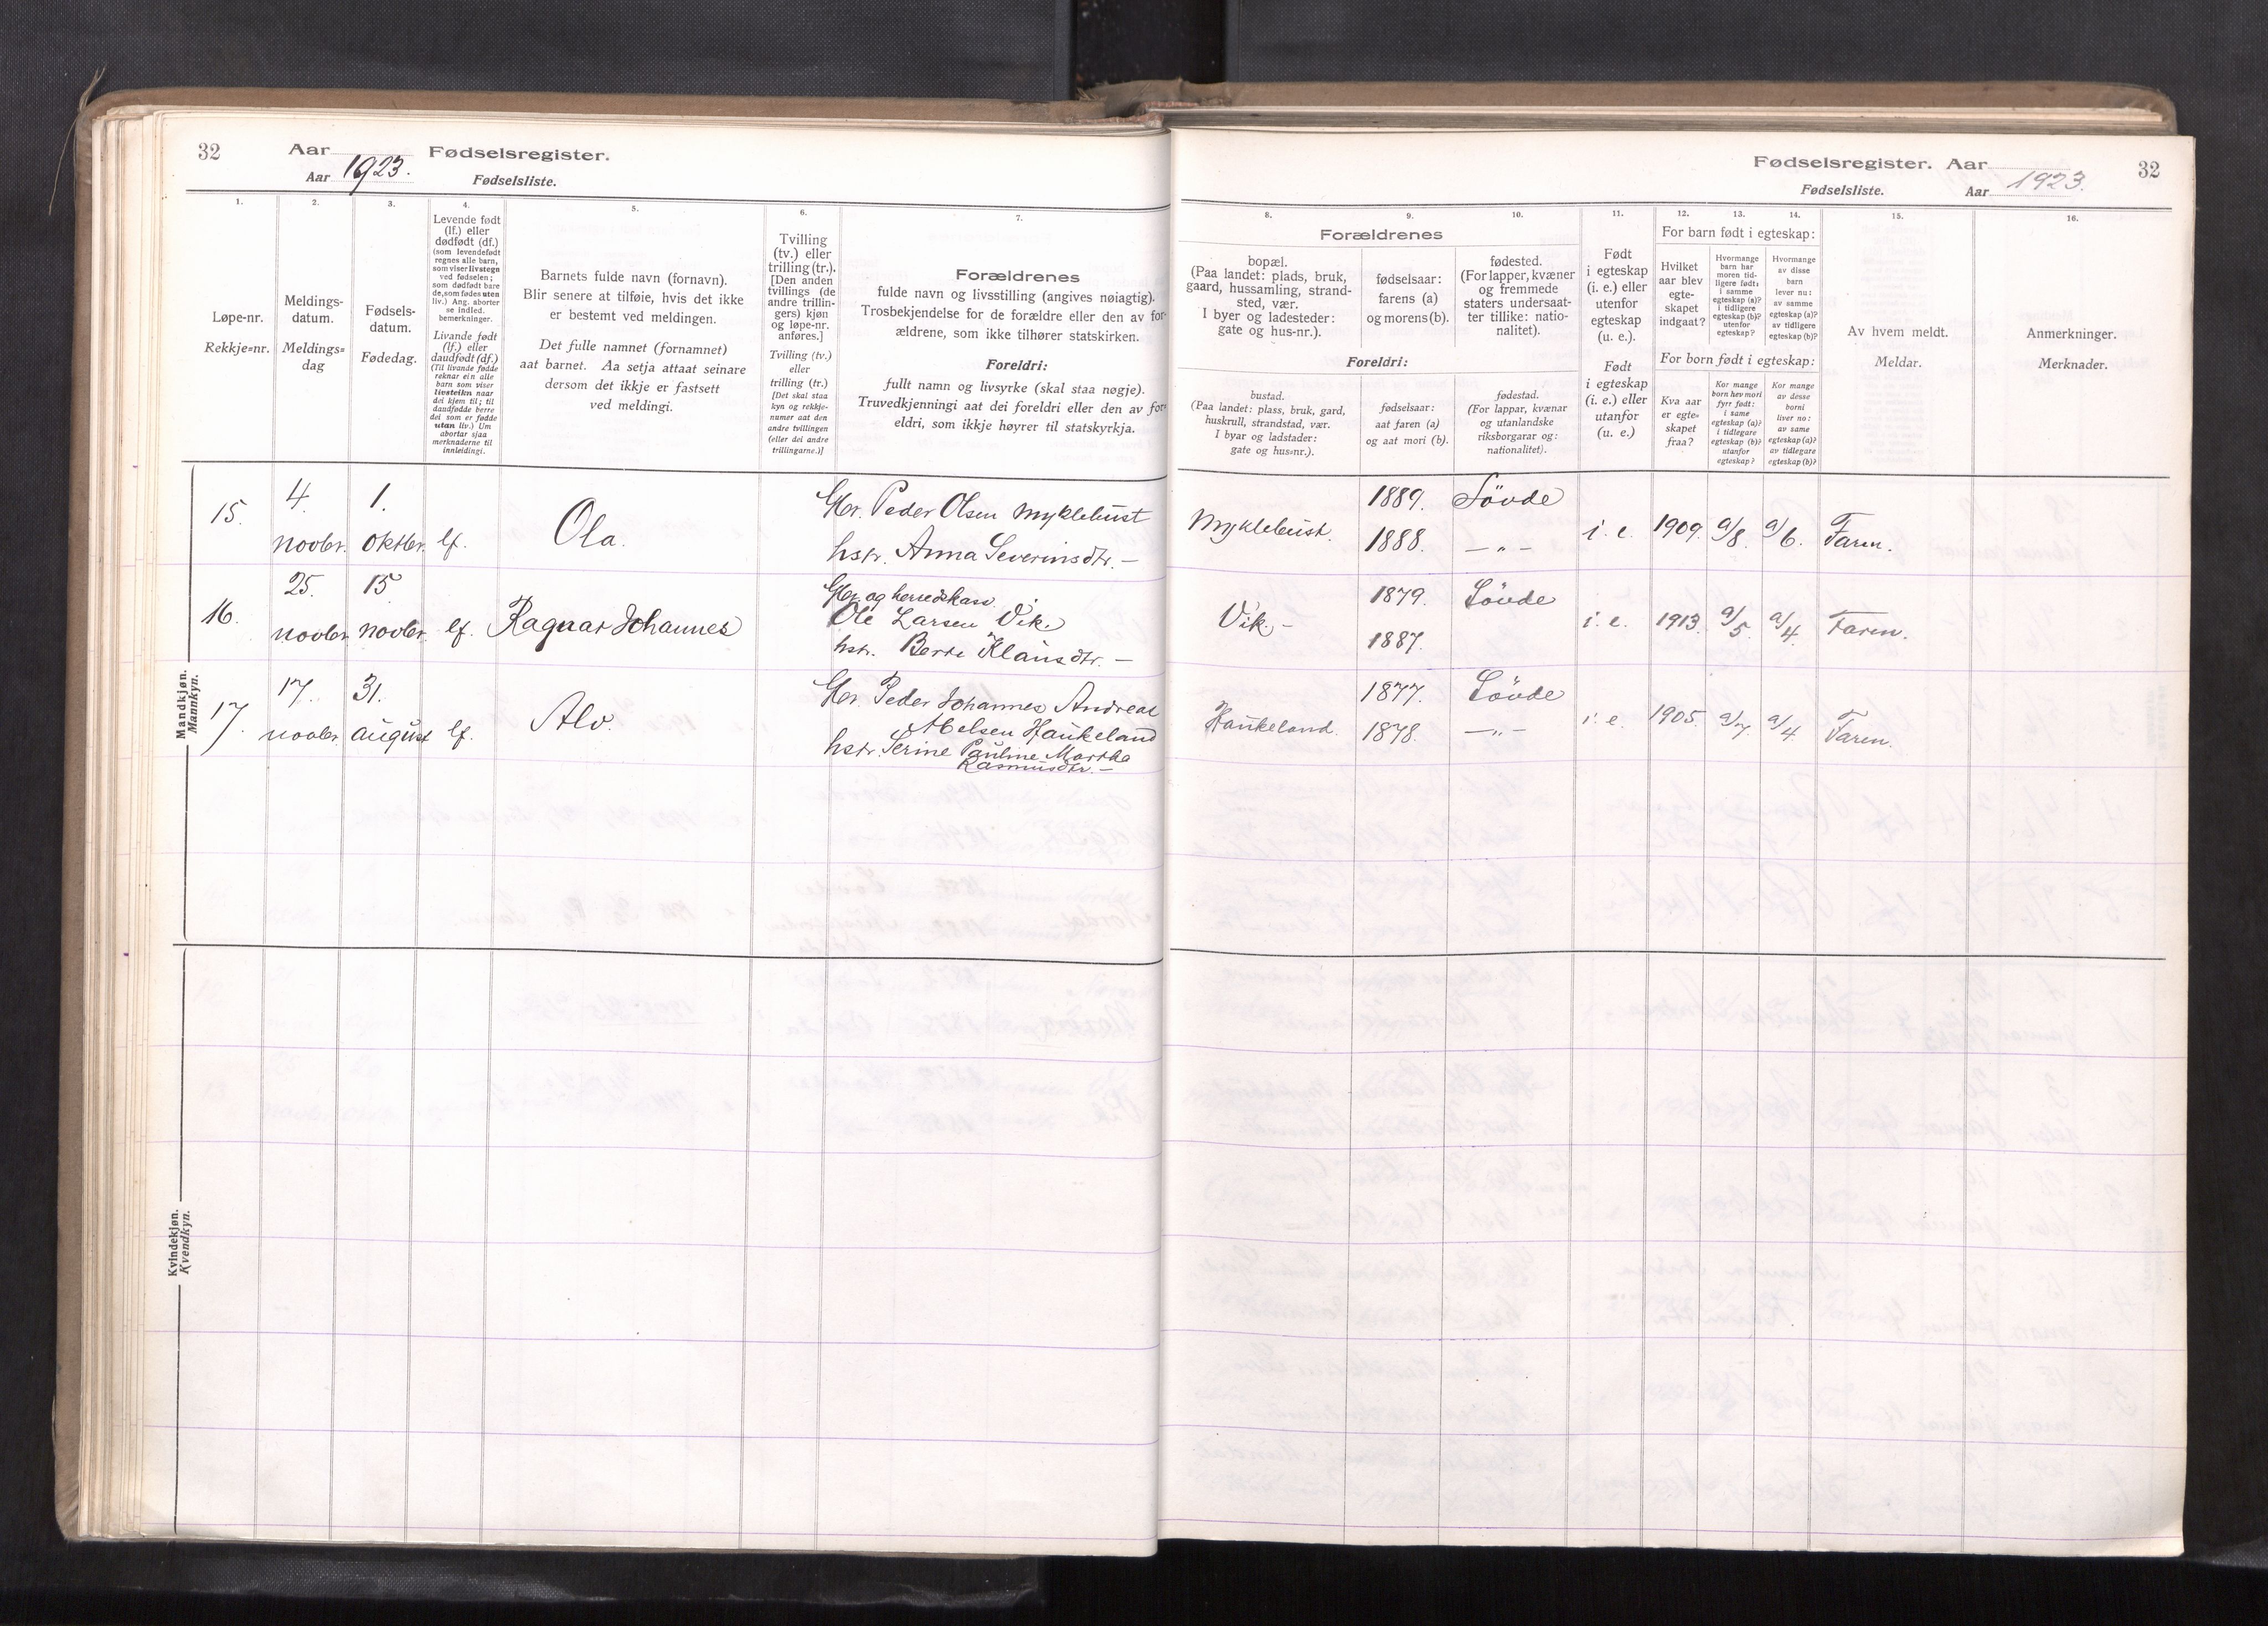 32
Aar
Fødselsregister.
Aar 1923.
Fødselsliste.
1.
2.
3.
4.
5.
6.
7.
Løpe-nr.
Rekkje=nr.
Meldings-
datum.
Meldings=
dag
Fødsels-
datum.
Fødedag.
Levende født
(lf.) eller
dødfødt (df.)
(som levendefødt
regnes alle barn,
som viser livstegn
ved fødselen;
som dødfødt bare
de, som fødes uten
liv.) Ang. aborter
se indled.
bemerkninger.
Livande født
(lf.) eller
daudfødt (df.)
(Til livande fødde
reknar ein alle
barn som viser
livsteikn naar
dei kjem til; til
daudfødde berre
dei som er fødde
utan liv.) Um
abortar sjaa
merknaderne til
innleidingi.
Barnets fulde navn (fornavn).
Blir senere at tilføie, hvis det ikke
er bestemt ved meldingen.
Det fulle namnet (fornamnet)
aat barnet. Aa setja attaat seinare
dersom det ikkje er fastsett
ved meldingi.
Tvilling
(tv.) eller
trilling (tr.).
[Den anden
tvillings (de
andre trillin-
gers) kjøn
og løpe-nr.
anføres.]
Tvilling (tv.)
eller
trilling (tr.)
[Det skal staa
kyn og rekkje-
numer aat den
andre tvillingen
(eller dei andre
trillingarne.)]
Forældrenes
fulde navn og livsstilling (angives nøiagtig).
Trosbekjendelse for de forældre eller den av for-
ældrene, som ikke tilhører statskirken.
Foreldri:
fullt namn og livsyrke (skal staa nøgje).
Truvedkjenningi aat dei foreldri eller den av for-
eldri, som ikkje høyrer til statskyrkja.
Mandkjøn.
Mannkyn.
15.
4.
novbr.
1.
oktbr.
lf.
Ola.
Gbr. Peder Olsen Myklebust
hstr. Anna Severinsdtr. —
16.
25.
novbr.
15
novbr.
lf.
Ragnar Johannes
Gbr. og herredskass.
Ole Larsen Vik.
hstr. Berte Klausdtr. —
17.
17.
novbr.
31.
august
lf.
Alv.
Gbr. Peder Johannes Andreas
Abelsen Haukeland
hstr. Serine Pauline Martha
Rasmusdtr. —
Kvindekjøn.
Kvendkyn.
Fødselsregister. Aar
32
Fødselsliste.
Aar 1923.
8.
9.
10.
11.
12.
13.
14.
15.
16.
Forældrenes
bopæl.
(Paa landet: plads, bruk,
gaard, hussamling, strand-
sted, vær.
I byer og ladesteder:
gate og hus-nr.).
fødselsaar:
farens (a)
og morens (b).
fødested.
(For lapper, kvæner
og fremmede
staters undersaat-
ter tillike: natio-
nalitet).
Foreldri:
bustad.
(Paa landet: plass, bruk, gard,
huskrull, strandstad, vær.
I byar og ladstader:
gate og hus=nr.).
fødselsaar:
aat faren (a)
og aat mori (b).
fødestad.
(For lappar, kvænar
og utanlandske
riksborgarar og:
nationalitet).
Født
i egteskap
(i. e.) eller
utenfor
egteskap
(u. e.).
Født
i egteskap
(i. e.) eller
utanfor
(u. e.)
For barn født i egteskap:
Hvilket
aar blev
egte-
skapet
indgaat?
Hvormange
barn har
moren tid-
ligere født:
i samme
egteskap (a)?
i tidligere
egteskap (b)?
utenfor
egteskap?
Hvormange
av disse
barn
lever nu:
av samme
egteskap (a)?
av tidligere
egteskap (b)?
For born født i egteskap:
Kva aar
er egte=
skapet
fraa?
Kor mange
born hev mori
fyrr født:
i same
egteskap (a)?
i tidlegare
egteskap (b)?
utanfor
egteskap?
Kor mange
av desse
borni
liver no:
av same
egteskap (a)?
av tidlegare
egteskap (b)?
Av hvem meldt.
Meldar.
Anmerkninger.
Merknader.
Myklebust.
1889.
1888.
Søvde
— „ —
i. e.
1909.
a/8.
a/6.
Faren.
Vik. —
1879.
1887.
Søvde
i. e.
1913.
a/5.
a/4.
Faren.
Haukeland.
1877.
1878.
Søvde
— „ —
i. e.
1905.
a/7.
a/4.
Faren.